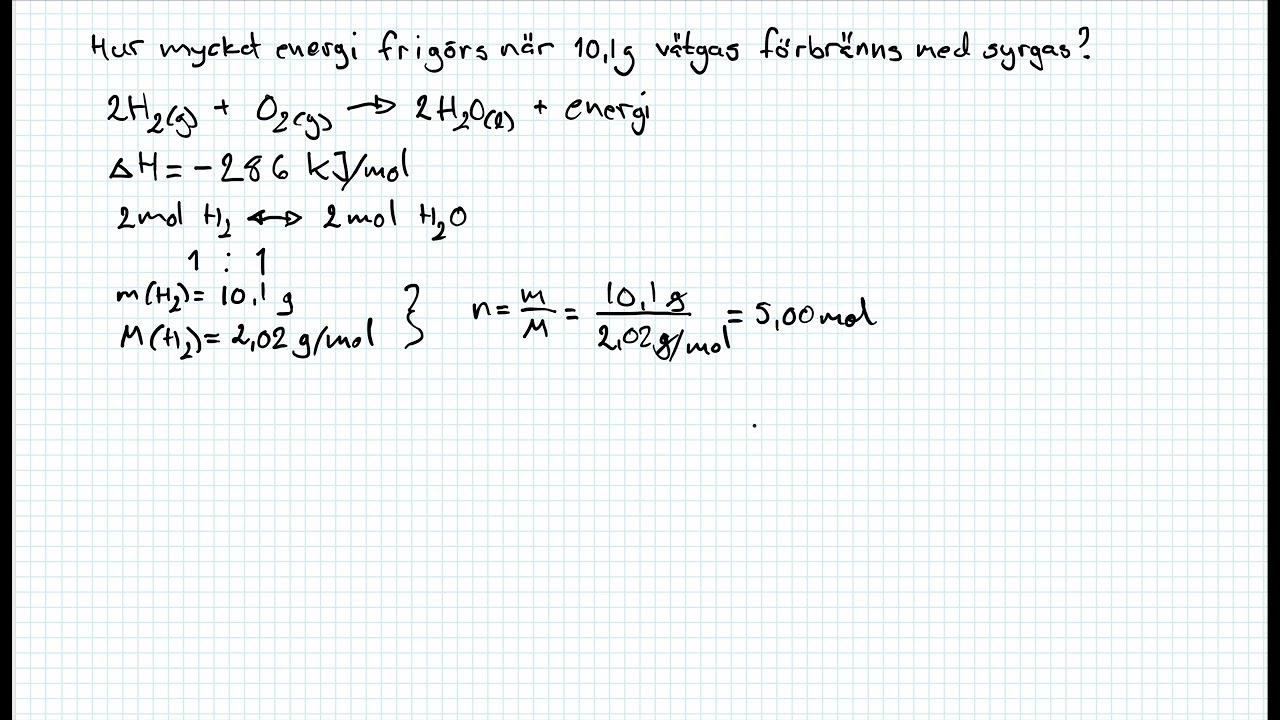 Hur mycket energi frigörs när 10,1g vätgas förbränns med syrgas?
2H₂(g) + O₂(g) → 2H₂O(l) + energi
ΔH = -286 kJ/mol
2mol H₂ ↔ 2mol H₂O
1 : 1
m(H₂) = 10,1 g
M(H₂) = 2,02 g/mol } n = m/M = 10,1 g / 2,02 g/mol = 5,00 mol